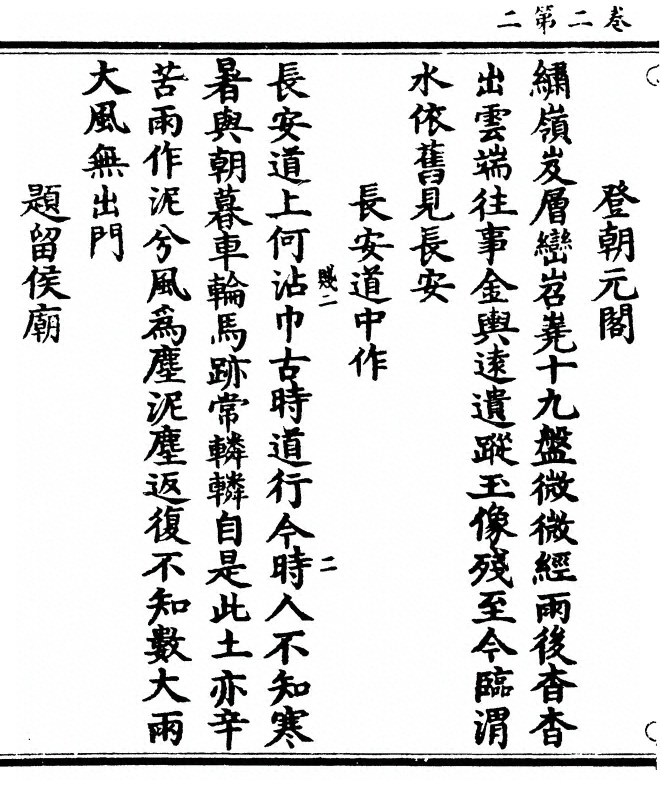 卷二第二
登朝元閣
繡嶺岌層巒岧嶤十九盤微微經雨後杳杳
出雲端往事金輿遠遺蹤玉像殘至今臨渭
水依舊見長安
長安道中作
長安道上何沾巾古時道行今時人不知寒
賤二 二
暑與朝暮車輪馬跡常轔轔自是此土亦辛
苦雨作泥兮風為塵泥塵返復不知數大雨
大風無出門
題留侯廟